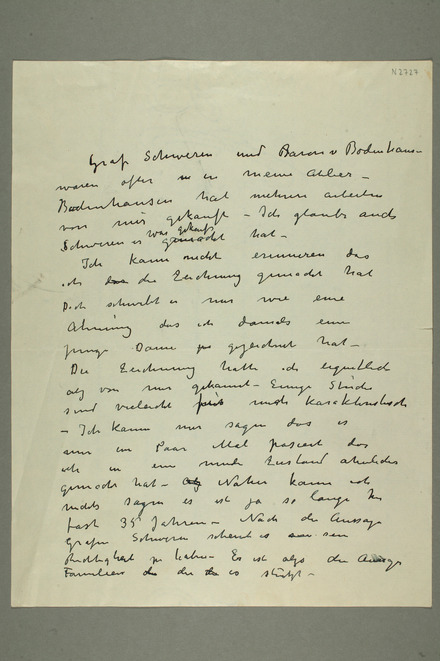 N2727
Graf Schweren und Baron v Bodenhaus-
waren öfter in meine Atelier -
Bodenhausen hat mehren arbeiten
von mir gekauft - Ich glaube auch
Schweren es was gekauft hat -
Ich kann nicht erinneren das
ich die Zeichnung gemacht hat
Doch schwebt es mir wie eine
Ahnung das ich damals eine
junge Dame gezeichnet hat -
Die Zeichnung hatte ich eigentlich
als von mir gekannt - Einige Stücke
sind vielleicht nicht karakteristisch
- Ich kann nur sagen das es
mir ein Paar Mal pasiert das
ich in ein Zustand ähnliches
gemacht hat - Näher kann ich
nichts sagen es ist ja so lange her
fast 35 Jahren - Nach die Aussage
Grafen Schweren scheint es sein
Richtigkeit zu haben - Es ist also die
Familien die es